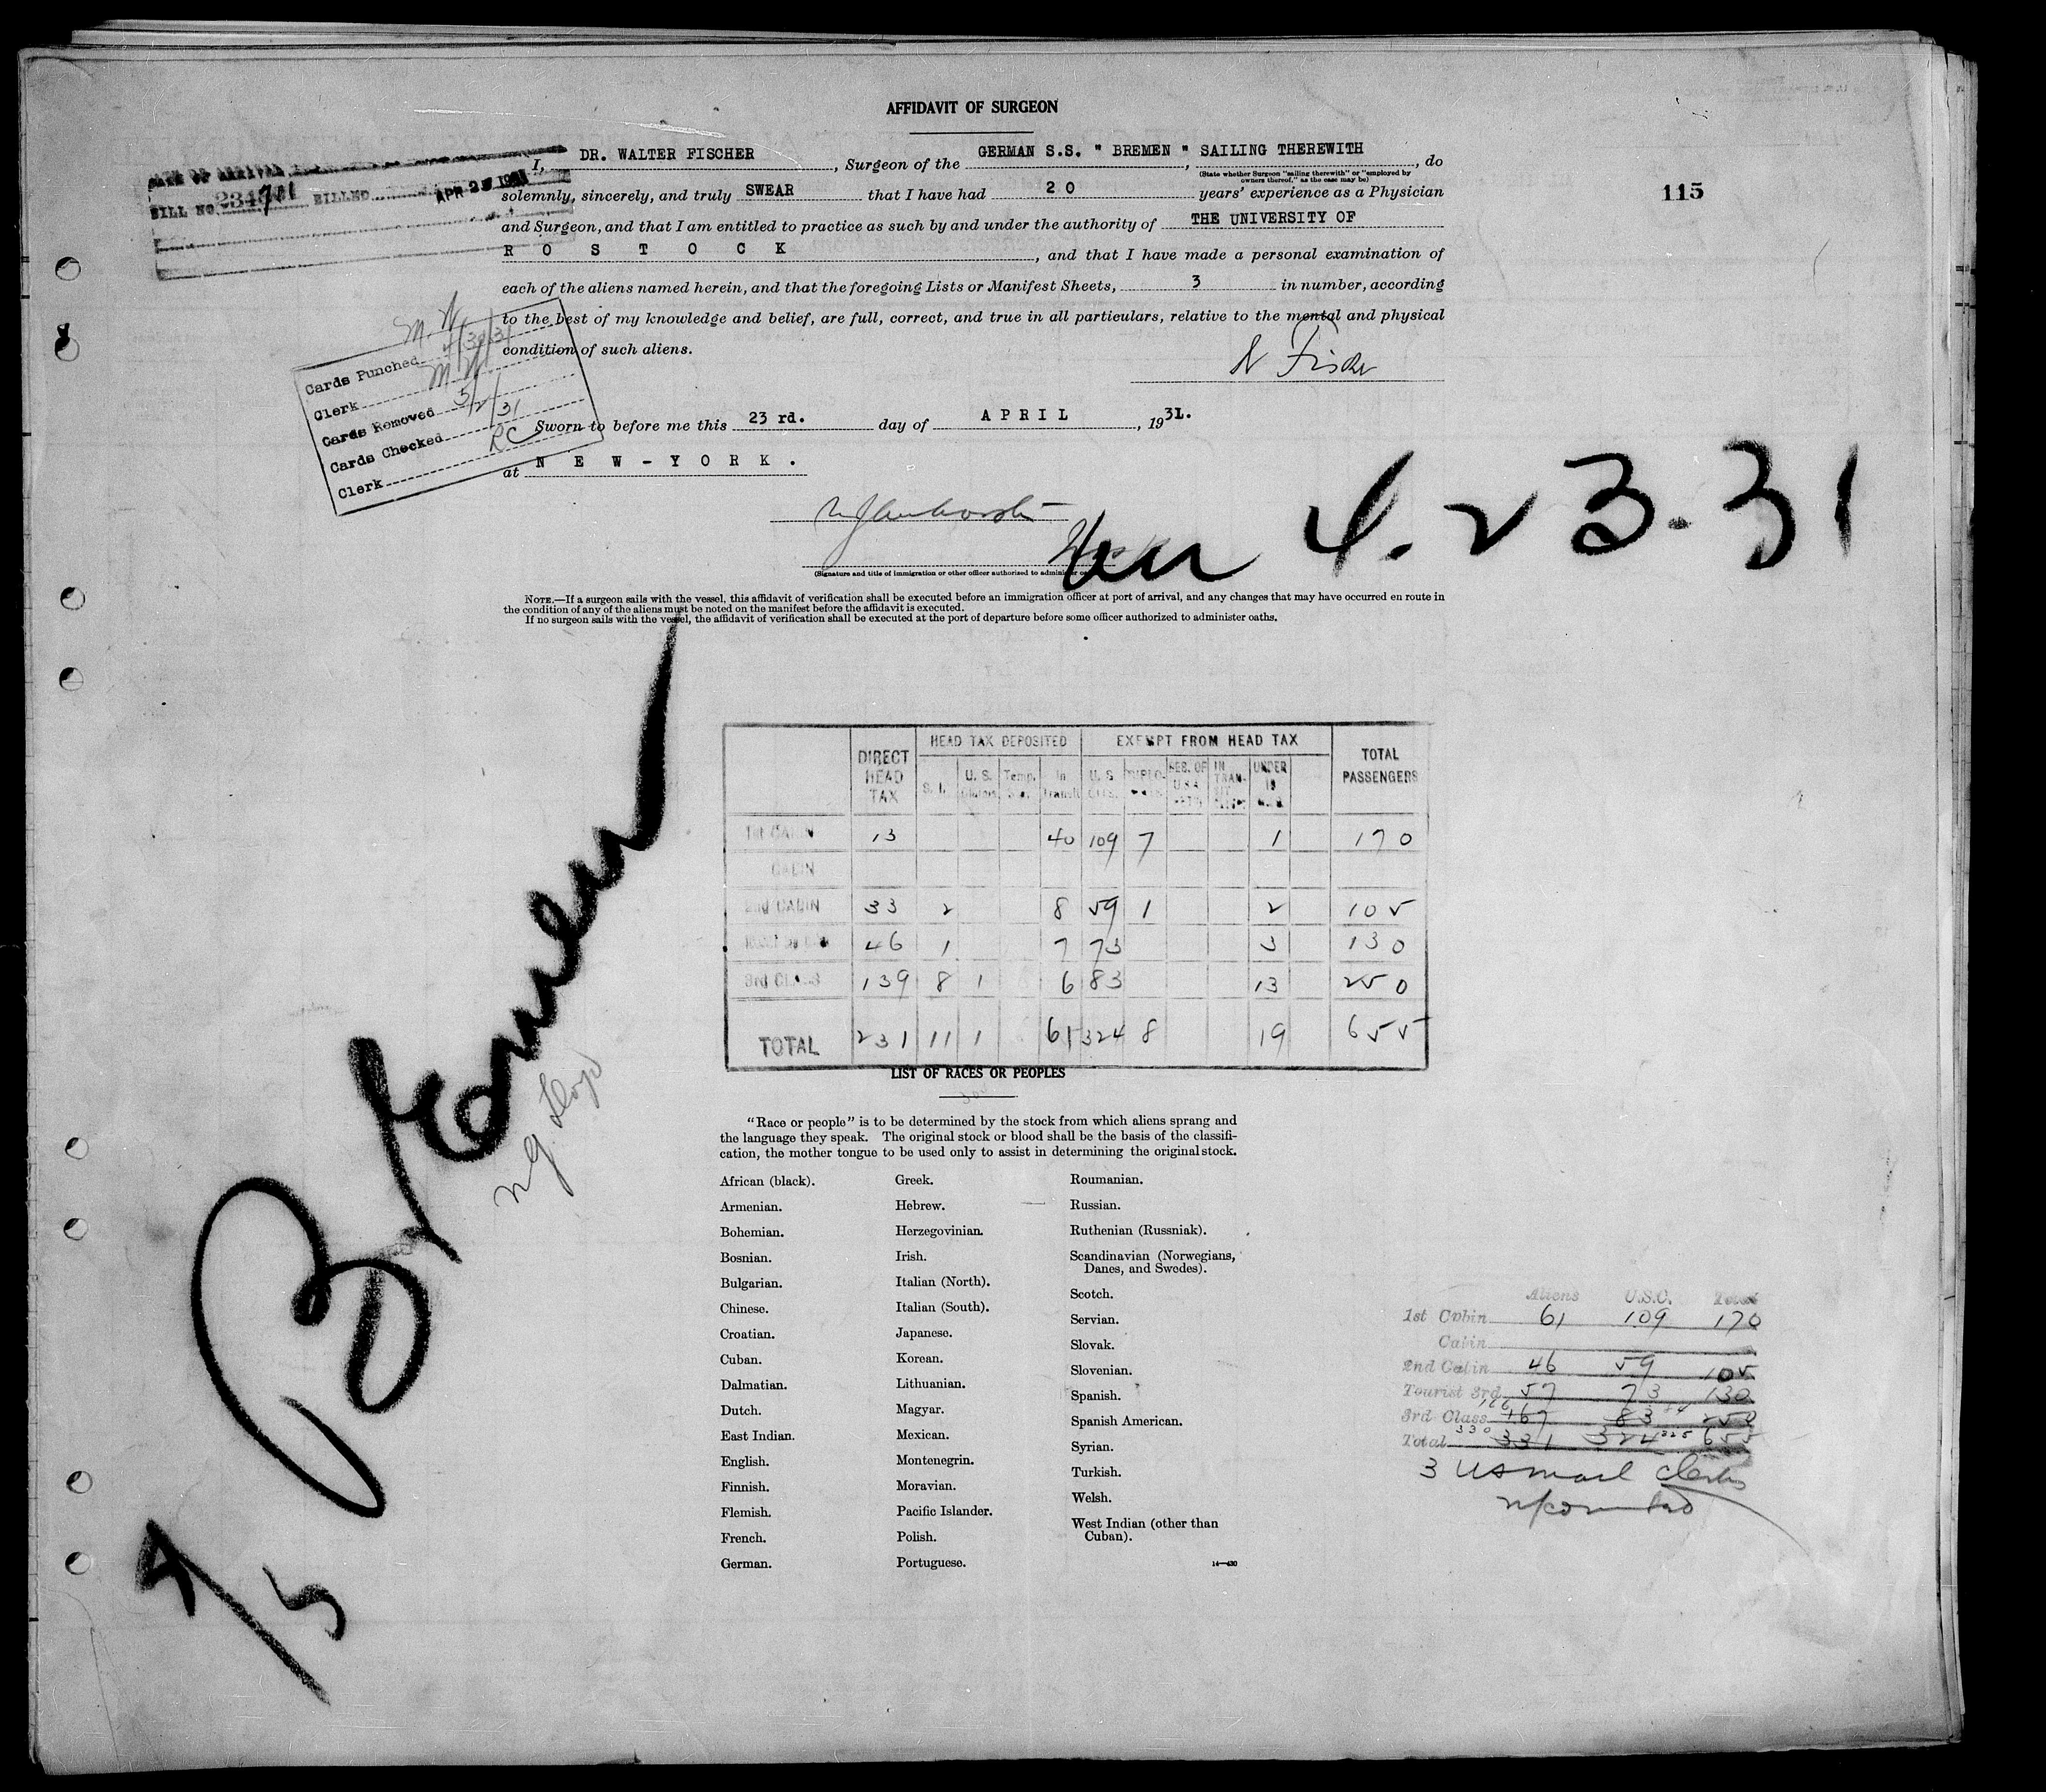 AFFIDAVIT OF SURGEON
I, DR. WALTER FISCHER, Surgeon of the GERMAN S.S. " BREMEN ", SAILING THEREWITH, do
(State whether Surgeon "sailing therewith" or "employed by owners thereof," as the case may be)
solemnly, sincerely, and truly SWEAR that I have had 20 years' experience as a Physician
and Surgeon, and that I am entitled to practice as such by and under the authority of THE UNIVERSITY OF
R O S T O C K, and that I have made a personal examination of
each of the aliens named herein, and that the foregoing Lists or Manifest Sheets, 3 in number, according
to the best of my knowledge and belief, are full, correct, and true in all particulars, relative to the mental and physical
condition of such aliens.
W Fischer
Sworn to before me this 23 rd. day of APRIL, 1931.
at N E W - Y O R K .
115
DATE OF ARRIVAL
BILL NO. BILLED APR 1931
Cards Punched 4/30/31
Clerk MW
Cards Removed 5/2/31
Cards Checked
Clerk RC
4.23.31
(Signature and title of immigration or other officer authorized to administer oaths)
NOTE.—If a surgeon sails with the vessel, this affidavit of verification shall be executed before an immigration officer at port of arrival, and any changes that may have occurred en route in
the condition of any of the aliens must be noted on the manifest before the affidavit is executed.
If no surgeon sails with the vessel, the affidavit of verification shall be executed at the port of departure before some officer authorized to administer oaths.
Bremen
DIRECT HEAD TAX HEAD TAX DEPOSITED EXEMPT FROM HEAD TAX TOTAL PASSENGERS
S. I. U. S. Temp. In Transit U. S. CITS. DIPLO. RES. OF U.S.A. IN TRANSIT UNDER 16
1st CABIN 13 40 109 7 1 170
CABIN
2nd CABIN 33 2 8 59 1 2 105
46 1 7 73 3 130
3rd CLASS 139 8 1 6 83 13 250
TOTAL 231 11 1 61 324 8 19 655
LIST OF RACES OR PEOPLES
"Race or people" is to be determined by the stock from which aliens sprang and
the language they speak. The original stock or blood shall be the basis of the classifi-
cation, the mother tongue to be used only to assist in determining the original stock.
African (black).
Armenian.
Bohemian.
Bosnian.
Bulgarian.
Chinese.
Croatian.
Cuban.
Dalmatian.
Dutch.
East Indian.
English.
Finnish.
Flemish.
French.
German.
Greek.
Hebrew.
Herzegovinian.
Irish.
Italian (North).
Italian (South).
Japanese.
Korean.
Lithuanian.
Magyar.
Mexican.
Montenegrin.
Moravian.
Pacific Islander.
Polish.
Portuguese.
Roumanian.
Russian.
Ruthenian (Russniak).
Scandinavian (Norwegians,
Danes, and Swedes).
Scotch.
Servian.
Slovak.
Slovenian.
Spanish.
Spanish American.
Syrian.
Turkish.
Welsh.
West Indian (other than
Cuban).
Aliens U.S.C. Total
1st Cabin 61 109 170
Cabin
2nd Cabin 46 59 105
Tourist 3rd 57 73 130
3rd Class 166 167 83 84 250
Total 330 331 324 325 655
3 US mail clerks
4/5